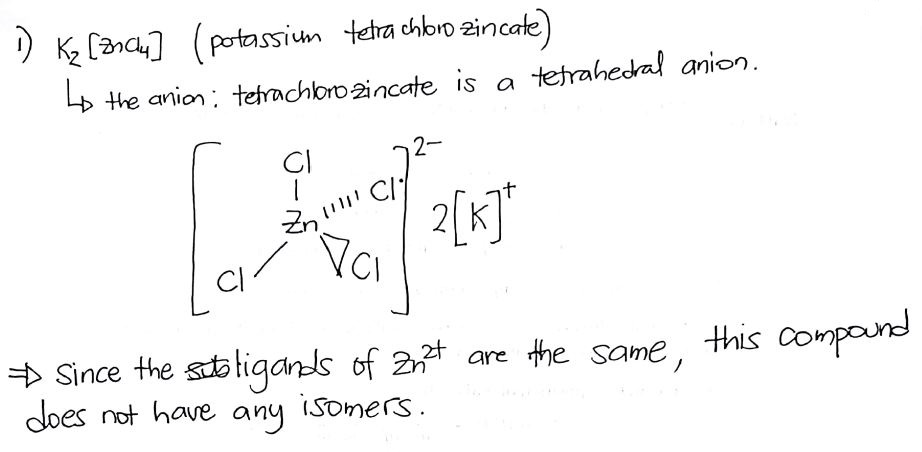 1) K₂[ZnCl₄] (potassium tetrachlorozincate)
↳ the anion: tetrachlorozincate is a tetrahedral anion.
[ Cl ]²⁻
Zn Cl 2[K]⁺
Cl Cl
⇒ Since the ligands of Zn²⁺ are the same, this compound
does not have any isomers.